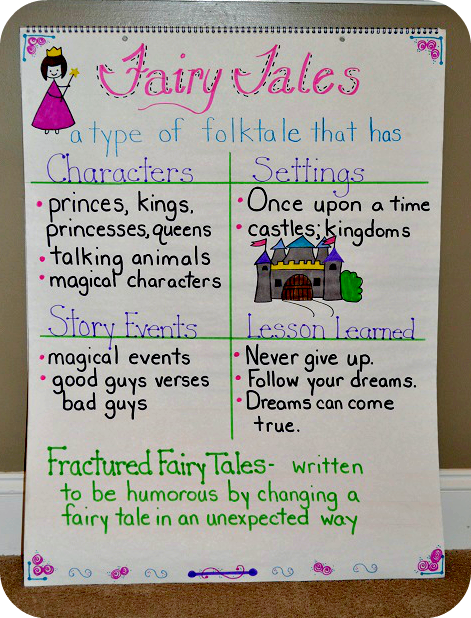 Fairy Tales
a type of folktale that has
Characters
• princes, kings,
princesses, queens
• talking animals
• magical characters
Settings
• Once upon a time
• castles; kingdoms
Story Events
• magical events
• good guys verses
bad guys
Lesson Learned
• Never give up.
• Follow your dreams.
• Dreams can come
true.
Fractured Fairy Tales- written
to be humorous by changing a
fairy tale in an unexpected way